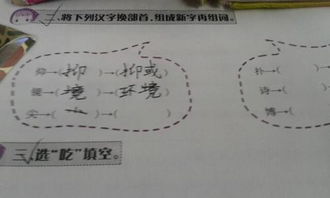 二、将下列汉字换部首,组成新字再组词。
仰→(抑)→(抑或) 朴→(
镜→(境)→(环境) 诗→(
尖→( )→( ) 博→(
三、选“吃”填空。